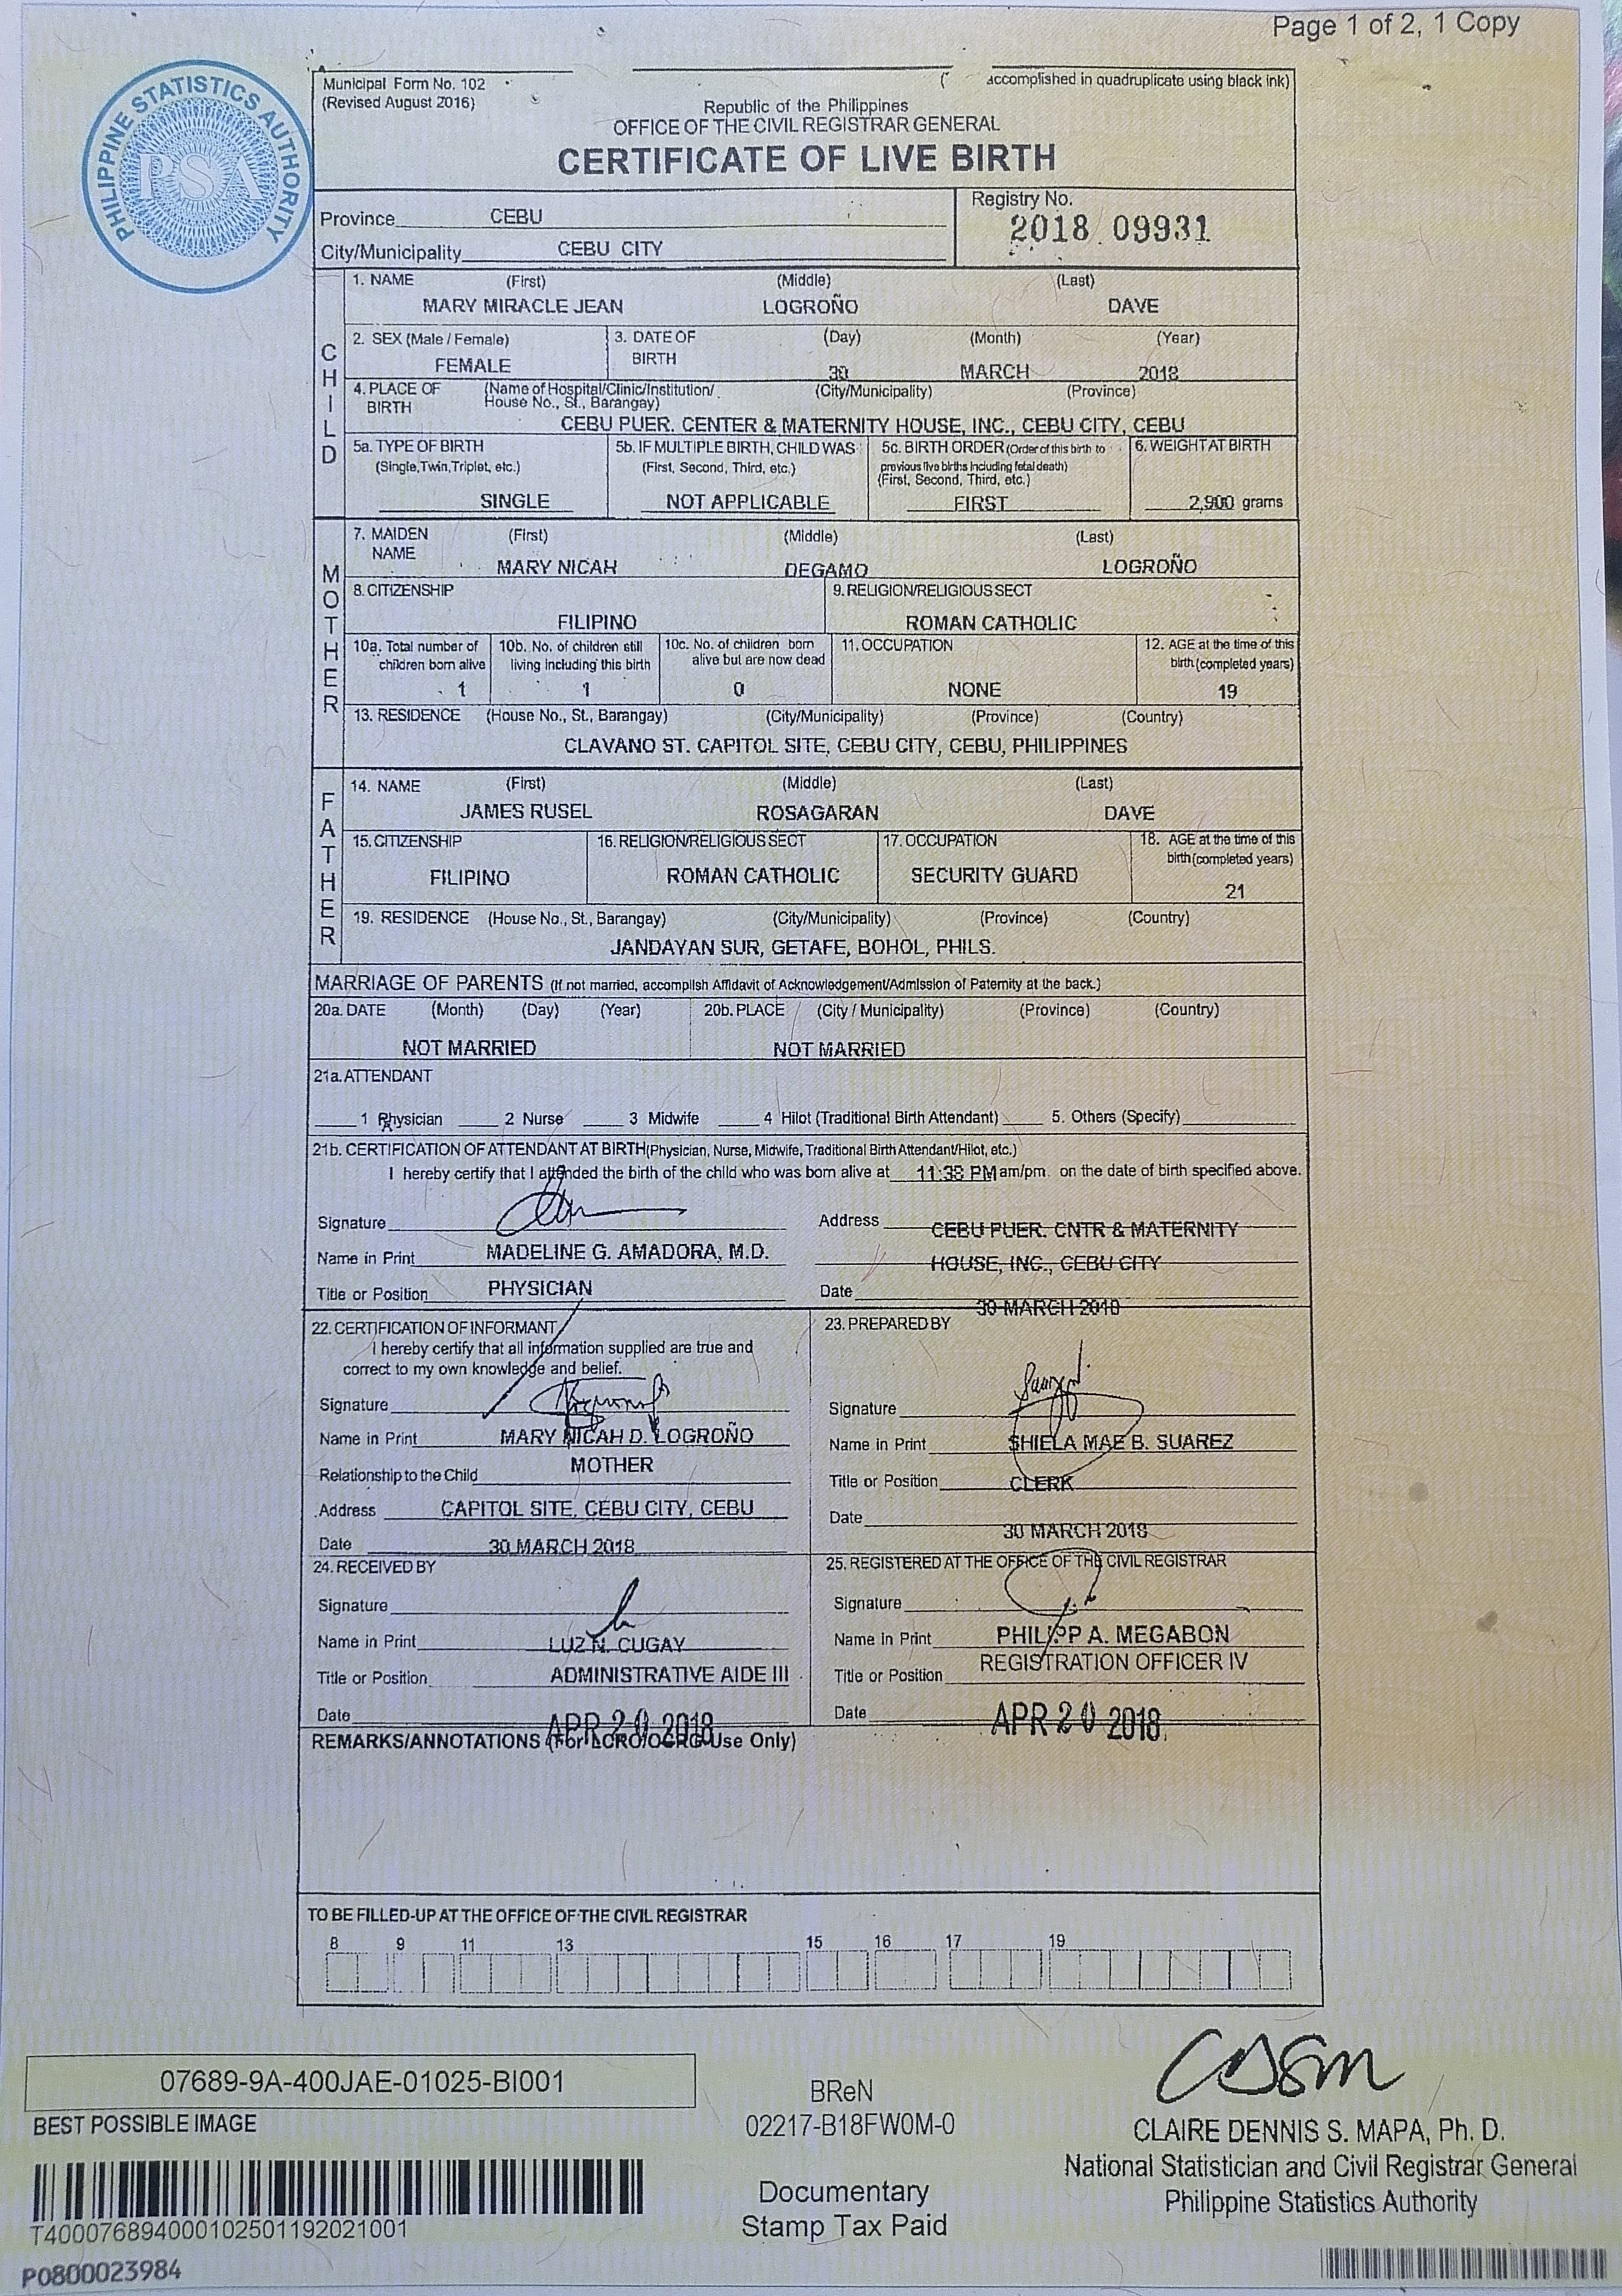 Page 1 of 2, 1 Copy
PHILIPPINE STATISTICS AUTHORITY
PSA
Municipal Form No. 102
(Revised August 2016)
accomplished in quadruplicate using black ink)
Republic of the Philippines
OFFICE OF THE CIVIL REGISTRAR GENERAL
CERTIFICATE OF LIVE BIRTH
Province CEBU
City/Municipality CEBU CITY
Registry No.
2018 09931
CHILD
1. NAME (First) (Middle) (Last)
MARY MIRACLE JEAN LOGROÑO DAVE
2. SEX (Male / Female) 3. DATE OF BIRTH (Day) (Month) (Year)
FEMALE 30 MARCH 2018
4. PLACE OF BIRTH (Name of Hospital/Clinic/Institution/ House No., St., Barangay) (City/Municipality) (Province)
CEBU PUER. CENTER & MATERNITY HOUSE, INC., CEBU CITY, CEBU
5a. TYPE OF BIRTH (Single,Twin,Triplet, etc.)
SINGLE
5b. IF MULTIPLE BIRTH, CHILD WAS (First, Second, Third, etc.)
NOT APPLICABLE
5c. BIRTH ORDER (Order of this birth to previous live births including fetal death) (First, Second, Third, etc.)
FIRST
6. WEIGHT AT BIRTH
2,900 grams
MOTHER
7. MAIDEN NAME (First) (Middle) (Last)
MARY NICAH DEGAMO LOGROÑO
8. CITIZENSHIP 9. RELIGION/RELIGIOUS SECT
FILIPINO ROMAN CATHOLIC
10a. Total number of children born alive
1
10b. No. of children still living including this birth
1
10c. No. of children born alive but are now dead
0
11. OCCUPATION
NONE
12. AGE at the time of this birth (completed years)
19
13. RESIDENCE (House No., St., Barangay) (City/Municipality) (Province) (Country)
CLAVANO ST. CAPITOL SITE, CEBU CITY, CEBU, PHILIPPINES
FATHER
14. NAME (First) (Middle) (Last)
JAMES RUSEL ROSAGARAN DAVE
15. CITIZENSHIP
FILIPINO
16. RELIGION/RELIGIOUS SECT
ROMAN CATHOLIC
17. OCCUPATION
SECURITY GUARD
18. AGE at the time of this birth (completed years)
21
19. RESIDENCE (House No., St., Barangay) (City/Municipality) (Province) (Country)
JANDAYAN SUR, GETAFE, BOHOL, PHILS.
MARRIAGE OF PARENTS (If not married, accomplish Affidavit of Acknowledgement/Admission of Paternity at the back.)
20a. DATE (Month) (Day) (Year) 20b. PLACE (City / Municipality) (Province) (Country)
NOT MARRIED NOT MARRIED
21a. ATTENDANT
1 Physician 2 Nurse 3 Midwife 4 Hilot (Traditional Birth Attendant) 5. Others (Specify)
21b. CERTIFICATION OF ATTENDANT AT BIRTH (Physician, Nurse, Midwife, Traditional Birth Attendant/Hilot, etc.)
I hereby certify that I attended the birth of the child who was born alive at 11:38 PM am/pm. on the date of birth specified above.
Signature
Name in Print MADELINE G. AMADORA, M.D.
Title or Position PHYSICIAN
Address CEBU PUER. CNTR & MATERNITY
HOUSE, INC., CEBU CITY
Date 30 MARCH 2018
22. CERTIFICATION OF INFORMANT
I hereby certify that all information supplied are true and
correct to my own knowledge and belief.
Signature
Name in Print MARY NICAH D. LOGROÑO
Relationship to the Child MOTHER
Address CAPITOL SITE, CEBU CITY, CEBU
Date 30 MARCH 2018
23. PREPARED BY
Signature
Name in Print SHIELA MAE B. SUAREZ
Title or Position CLERK
Date 30 MARCH 2018
24. RECEIVED BY
Signature
Name in Print LUZ N. CUGAY
Title or Position ADMINISTRATIVE AIDE III
Date APR 20 2018
25. REGISTERED AT THE OFFICE OF THE CIVIL REGISTRAR
Signature
Name in Print PHILIPP A. MEGABON
Title or Position REGISTRATION OFFICER IV
Date APR 20 2018
REMARKS/ANNOTATIONS (For LCRO/OCRG Use Only)
TO BE FILLED-UP AT THE OFFICE OF THE CIVIL REGISTRAR
8 9 11 13 15 16 17 19
07689-9A-400JAE-01025-BI001
BEST POSSIBLE IMAGE
T400076894000102501192021001
P0800023984
BReN
02217-B18FW0M-0
Documentary
Stamp Tax Paid
CLAIRE DENNIS S. MAPA, Ph. D.
National Statistician and Civil Registrar General
Philippine Statistics Authority